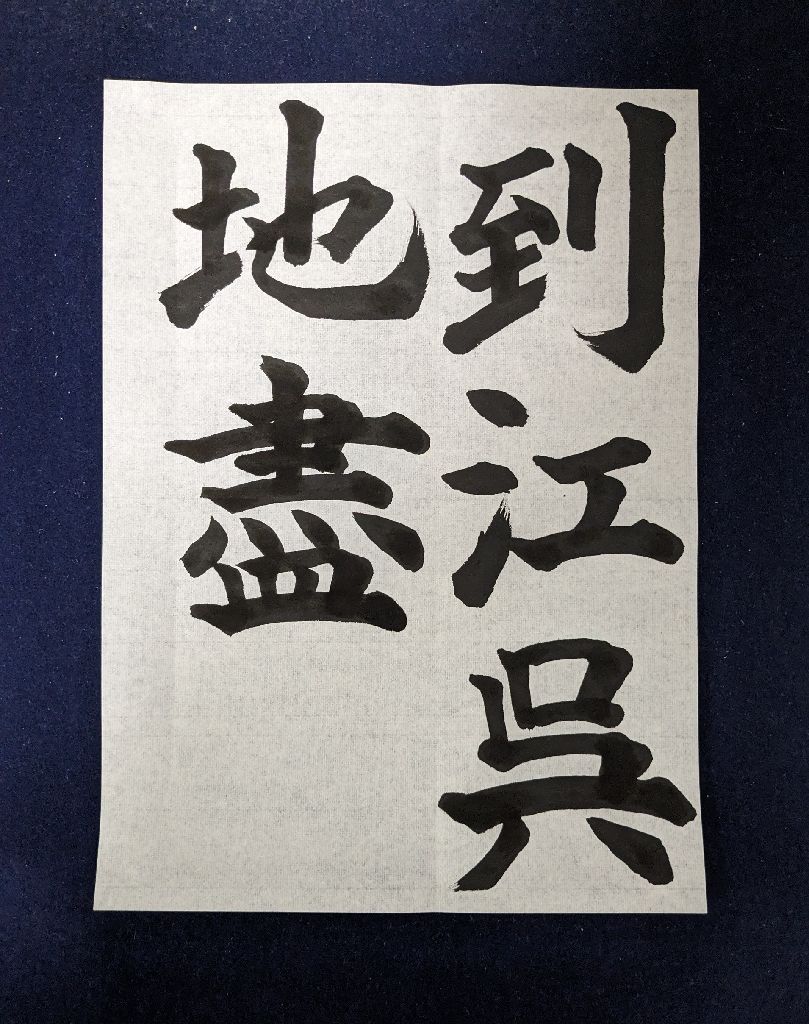 到江呉
地盡